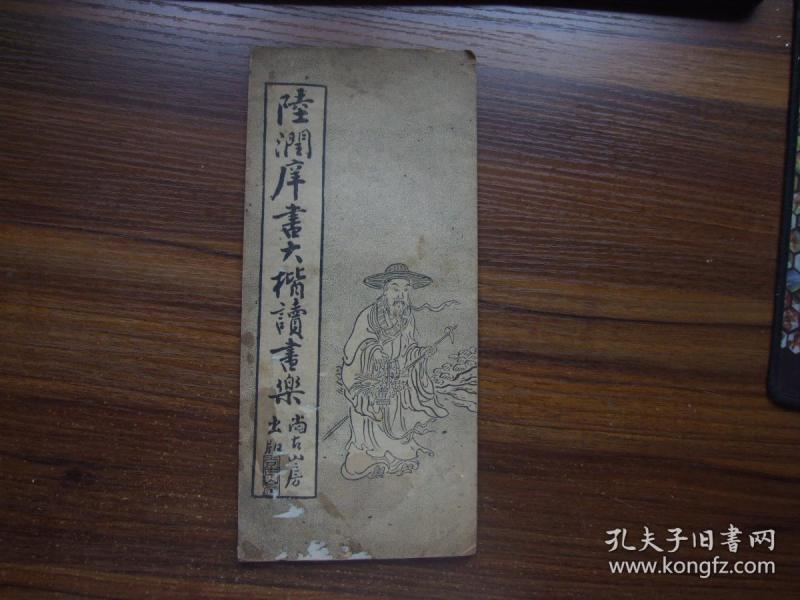 陸潤庠書大楷讀書樂
尚古山房
出版
孔夫子旧書网
www.kongfz.com